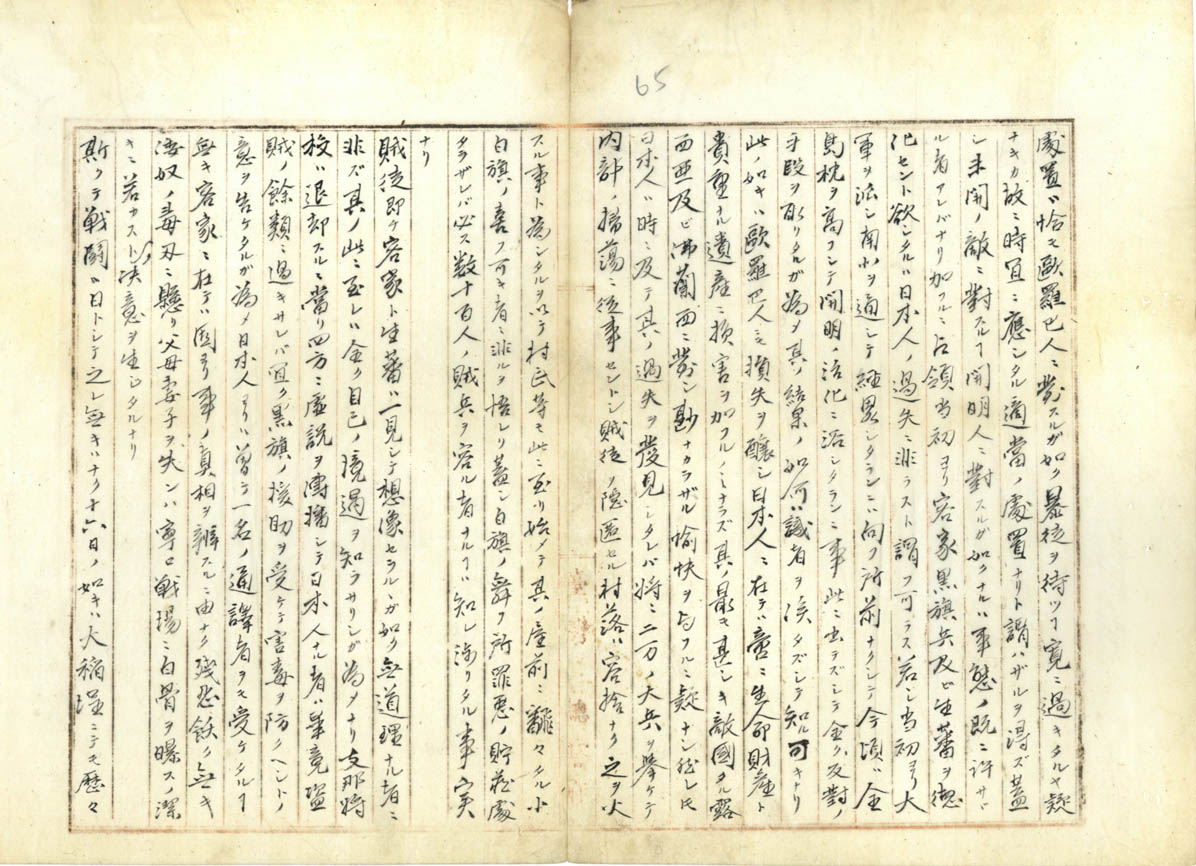 65
處置ハ恰モ歐羅巴人ニ對スルガ如ク暴徒ヲ待ツヿ寛ニ過キタルヤ疑
ナキカ故ニ時宜ニ應シタル適當ノ處置ナリト謂ハザルヲ得ズ蓋
シ未開ノ敵ニ對スルヿ開明人ニ對スルガ如クナルハ事態ノ既ニ許サヾ
ル者アレバナリ加フルニ占領当初ヨリ客家黒旗兵及ビ生蕃ヲ懲
化セント欲シタルハ日本人ノ過失ニ非ラスト謂フ可ラス若シ当初ヨリ大
軍ヲ派シ南北ヲ通シテ経畧シタランニハ向フ所前ナクシテ今頃ハ全
島枕ヲ高フシテ開明ノ活化ニ浴シタランニ事此ニ出テズシテ全ク反對ノ
手段ヲ取リタルガ為メ其ノ結果ノ如何ハ識者ヲ俟タズシテ知ル可キナリ
此ノ如キハ歐羅巴人ニモ損失ヲ釀シ日本人ニ在テハ啻ニ生命財産ト
貴重ナル遺産ニ損害ヲ加フルノミナラズ其最モ甚シキ敵國タル露
西亜及ビ沸蘭西ニ對シ尠ナカラザル愉快ヲ与フルニ疑ナシ然レ圧
日本人ハ時ニ及テ其ノ過失ヲ發見シタレバ将ニ二万ノ大兵ヲ挙ケテ
内計ノ掃蕩ニ従事セントシ賊徒ノ隠匿セル村落ハ容捨ナク之ヲ火
スル事ト為シタルヲ以テ村民等モ此ニ至リ始メテ其ノ屋前ニ飜々タル小
白旗ノ喜フ可キ者ニ非ルヲ悟レリ蓋シ白旗ノ舞フ所罪惡ノ貯蓄處
タラザレバ必ス数十百人ノ賊兵ヲ容ル者ナルヿハ知レ渉リタル事実
ナリ
賊徒即ケ客家ト生蕃ハ一見シテ想像セラルヽガ如ク無道理ナル者ニ
非ズ其ノ此ニ至レハ全ク自己ノ境遇ヲ知ラサリシガ為メナリ支那将
校ハ退却スルニ當リ四方ニ虚説ヲ傳播シテ日本人ナル者ハ畢竟盗
賊ノ餘類ニ過キサレバ宜ク黒旗ノ援助ヲ受ケテ害毒ヲ防クヘシトノ
意ヲ告ケタルガ為メ日本人ヨリハ曽テ一名ノ通譯者ヲモ受ケタルヿ
無キ客家ニ在テハ固ヨリ事ノ真相ヲ辨スルニ由ナク残忍飫ク無キ
海奴ノ毒刃ニ懸リ父母妻子ヲ失ンハ寧ロ戦場ニ白骨ヲ曝スノ潔
キニ若カストノ决意ヲ生シタルナリ
斯クテ戦闘ハ日トシテ之レ無キハナク十六日ノ如キハ大稲埕ニテモ歴々